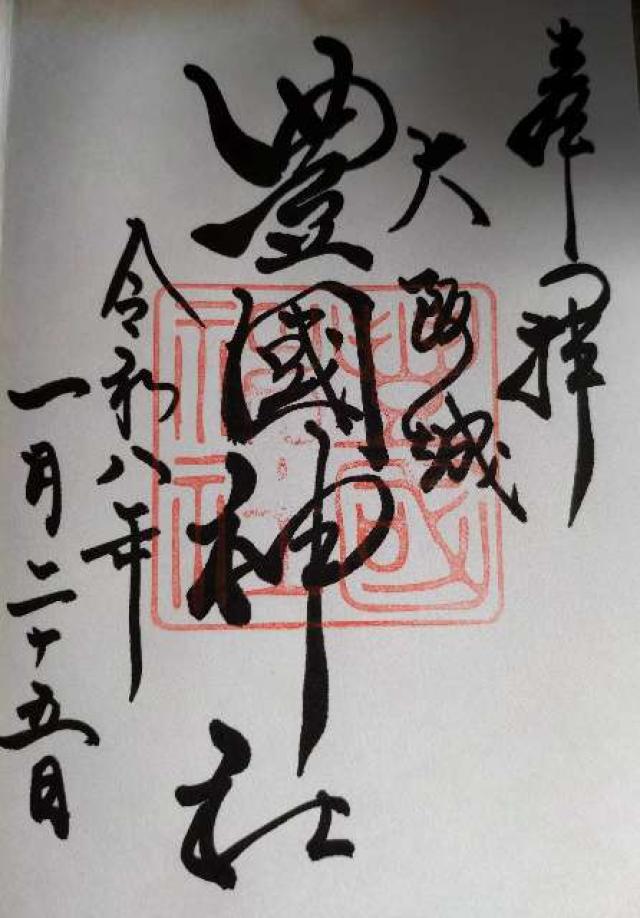 奉拝
大阪城
豊國神社
令和八年
一月二十五日